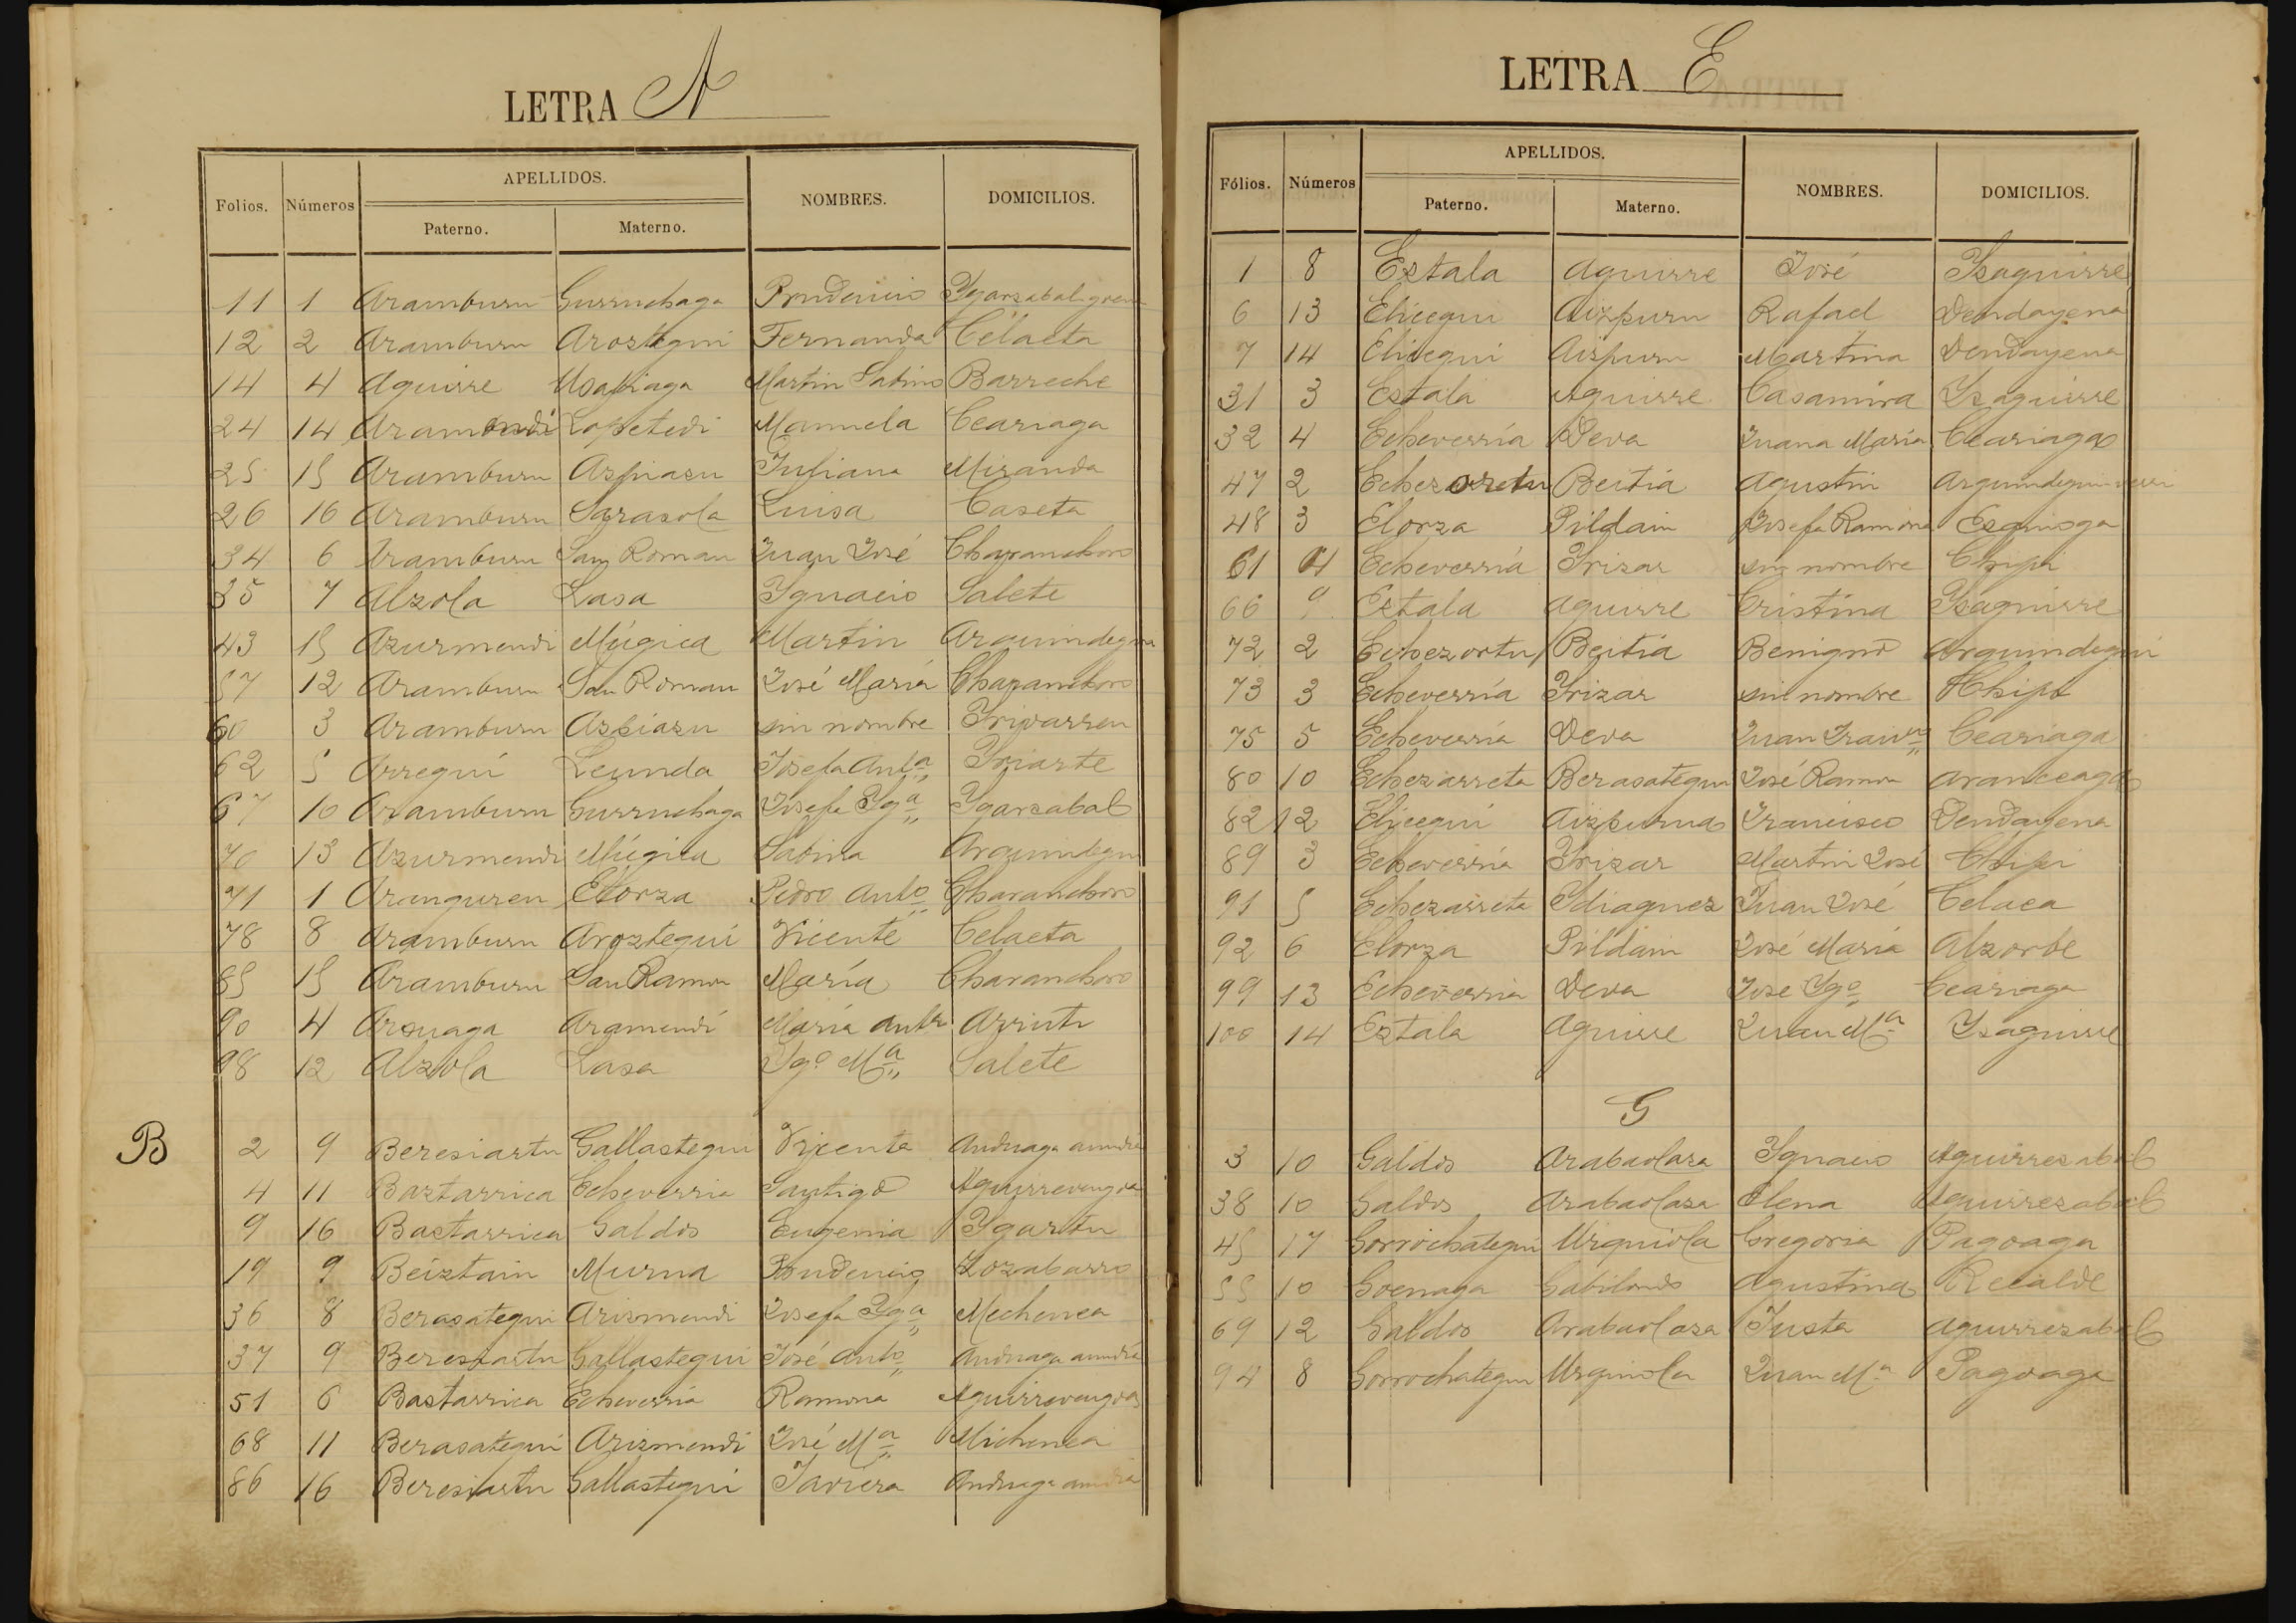 LETRA A
Folios. Números APELLIDOS. NOMBRES. DOMICILIOS.
Paterno. Materno.
11 1 Aramburu Gurruchaga Prudencio Ygarzabal
12 2 Aramburu Aroztegui Fernanda Celaeta
14 4 Aguirre Usabiaga Martin Sabino Barreche
24 14 Lopetedi Manuela Ceariaga
25 15 Aramburu Aspiazu Juliana Miranda
26 16 Aramburu Sarasola Luisa Caseta
34 6 Aramburu San Roman Juan José Charanchoro
35 7 Alzola Lasa Ygnacio Salete
43 15 Azurmendi Múgica Martin Arquindegui
57 12 Aramburu San Roman José María Charanchoro
60 3 Aramburu Azpiazu sin nombre Yrivarren
62 5 Arregui Leunda Josefa Antª Yriarte
67 10 Aramburu Gurruchaga Josefa Ygª Ygarzabal
70 13 Azurmendi Múgica Sabina Arquindegui
71 1 Aranguren Elorza Pedro Antº Charanchoro
78 8 Aramburu Aroztegui Vicente Celaeta
85 15 Aramburu San Ramon María Charanchoro
90 4 Arsuaga Aramendi María Antª Arriuti
98 12 Alzola Lasa Ygº Mª Salete
B
2 9 Beresiartu Gallastegui Vicenta Anduaga aundia
4 11 Baztarrica Echeverria Santigo Aguirrevengoa
9 16 Bastarrica Galdos Eugenia Ygartu
19 9 Beiztain Murua Prudencio Zozabarro
36 8 Berasategui Arizmendi Josefa Ygª Mechenea
37 9 Beresiartu Gallastegui José Antº Anduaga aundia
51 6 Bastarrica Echeverria Ramona Aguirrevengoa
68 11 Berasategui Arizmendi José Mª Michenea
86 16 Beresiartu Gallastegui Javiera Anduaga aundia
LETRA E
Fólios. Números APELLIDOS. NOMBRES. DOMICILIOS.
Paterno. Materno.
1 8 Eztala Aguirre José Ysaguirre
6 13 Elicegui Aizpuru Rafael Dendayena
7 14 Elicegui Aizpuru Martina Dendayena
31 3 Estala Aguirre Casamira Ysaguirre
32 4 Echeverría Deva Juana María Ceariaga
47 2 Echezortu Beitia Agustin
48 3 Elorza Pildain Josefa Ramona Esquioga
61 4 Echeverría Yrizar sin nombre Chipi
66 9 Eztala Aguirre Cristina Ysaguirre
72 2 Echezortu Beitia Benigno Arquindegui
73 3 Echeverría Yrizar sin nombre Chipi
75 5 Echeverria Deva Juan Franco Ceariaga
80 10 Echezarreta Berasategui José Ramon Aranceaga
82 12 Elicegui Aizpurua Francisco Dendayena
89 3 Echeverria Yrizar Martin José Chipi
91 5 Echezarreta Ydiaquez Juan José Celaea
92 6 Elorza Pildain José María Alzorbe
99 13 Echeverria Deva José Ygº Ceariaga
100 14 Eztala Aguirre Juan Mª Ysaguirre
G
3 10 Galdos Arabaolaza Ygnacio Aguirrezabal
38 10 Galdos Arabaolaza Elena Aguirrezabal
45 17 Gorrochategui Urquiola Gregoria Pagoaga
55 10 Goenaga Gabilondo Agustina Recalde
69 12 Galdos Arabaolaza Justa Aguirrezabal
94 8 Gorrochategui Urquiola Juan Mª Pagoaga